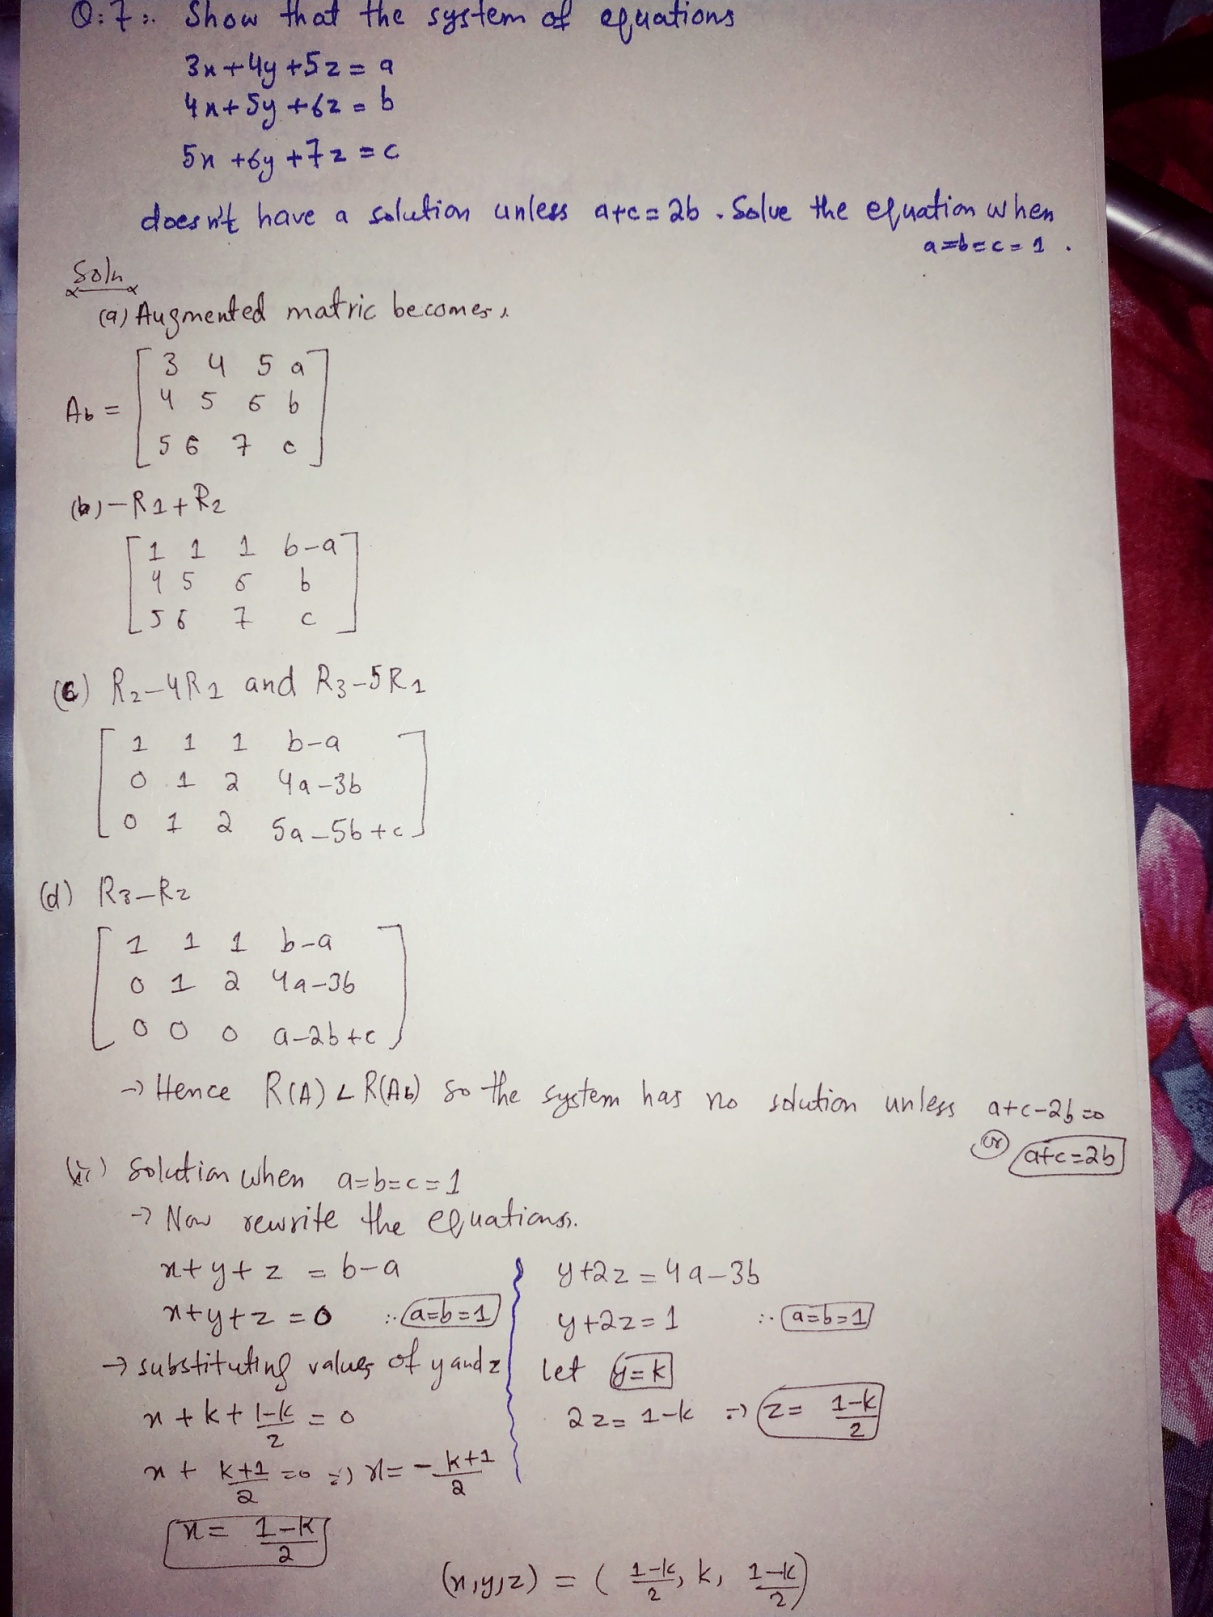 Q:7:. Show that the system of equations
3x+4y+5z = a
4x+5y+6z = b
5x+6y+7z = c
doesn't have a solution unless a+c = 2b. Solve the equation when
a=b=c=1.
Soln
(a) Augmented matric becomes,
Ab = [3 4 5 a
4 5 6 b
5 6 7 c]
(b) -R1+R2
[1 1 1 b-a
4 5 6 b
5 6 7 c]
(c) R2-4R1 and R3-5R1
[1 1 1 b-a
0 1 2 4a-3b
0 1 2 5a-5b+c]
(d) R3-R2
[1 1 1 b-a
0 1 2 4a-3b
0 0 0 a-2b+c]
→ Hence R(A) < R(Ab) so the system has no solution unless a+c-2b=0
or a+c=2b
(ii) Solution when a=b=c=1
→ Now rewrite the equations.
x+y+z = b-a
x+y+z = 0 ∵ a=b=1
→ substituting values of y and z
x + k + (1-k)/2 = 0
x + (k+1)/2 = 0 ⇒ x = -(k+1)/2
x = (1-k)/2
y+2z = 4a-3b
y+2z = 1 ∵ a=b=1
let y=k
2z = 1-k ⇒ z = (1-k)/2
(x,y,z) = ((1-k)/2, k, (1-k)/2)